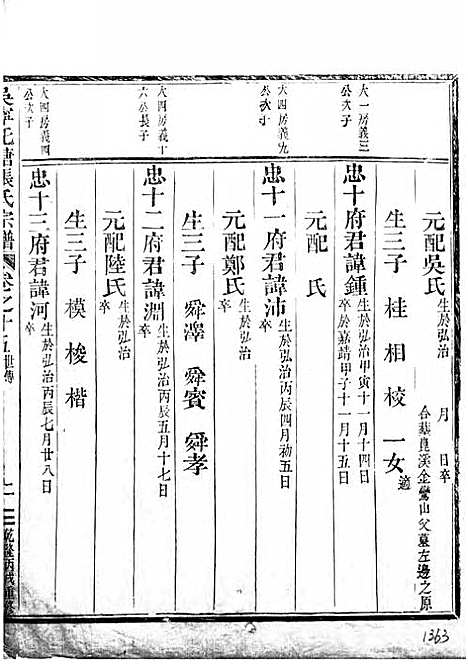 元配吳氏 生於弘治 月 日卒 合葬崑溪金鶯山父墓左邊之原
生三子 桂 相 校 一女 適
大一房義三公次子
忠十府君諱鍾 生於弘治甲寅十一月十四日 卒於嘉靖甲子十一月十五日
元配 氏
大四房義九公次子
忠十一府君諱沛 生於弘治丙辰四月初五日 卒
元配鄭氏 生於弘治 卒
生三子 舜澤 舜賓 舜孝
大四房義十六公長子
忠十二府君諱淵 生於弘治丙辰五月十七日 卒
元配陸氏 生於弘治 卒
生三子 模 梭 楷
大四房義四公次子
忠十三府君諱河 生於弘治丙辰七月廿八日 卒
吳寧托塘張氏宗譜 卷之十五 世傳
乾隆丙戌重修
1363